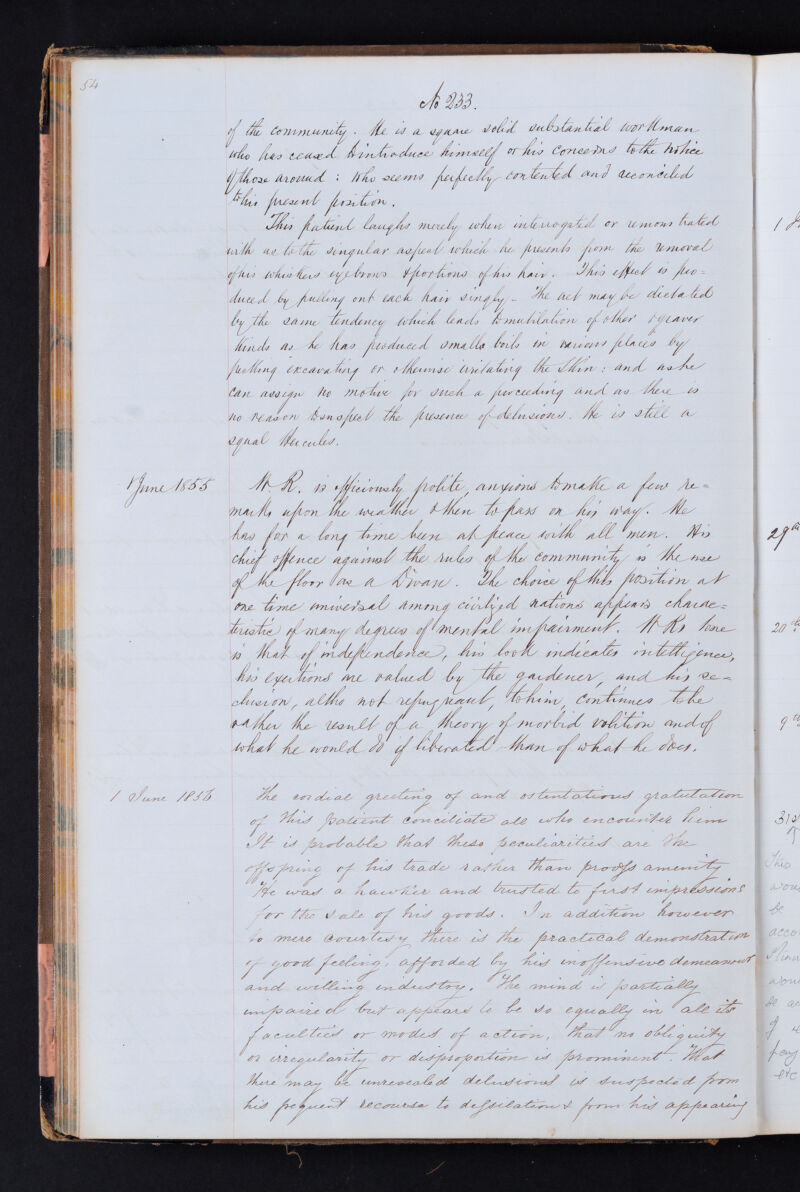 54
No 233.
of the community. He is a square solid substantial workman
who has ceased to introduce himself or his concerns to the notice
of those around: who seems perfectly contented and reconciled
to his present position.
This patient laughs merely when interrogated or remonstrated
with as to the singular aspect which he presents from the removal
of his whiskers eyebrows & portions of his hair. This effect is pro=
duced by pulling out each hair singly - The act may be dictated
by the same tendency which leads to mutilation of other & graver
kinds as he has produced small boils in various places by
picking excavating or otherwise irritating the skin: and as he
can assign no motive for such a proceeding and as there is
no reason to suspect the presence of delusions. He is still a
squal Hercules.
1 June 1855
W. R. is officiously polite, anxious to make a few re=
marks upon the weather & then to pass on his way. He
has for a long time been at peace with all men. His
chief offence against the rules of the community is the use
of the floor as a Divan. The choice of this position at
one time universal among civilized nations appears charac=
teristic of many degrees of mental impairment. W Rs tone
is that of independence, his look indicates intelligence,
his exertions are valued by the gardener, and his se=
clusion, altho not repugnant, to him, continues to be
rather the result of a theory of morbid volition and of
what he would do if liberated than of what he does.
1 June 1856
The cordial greeting of and ostentatious gratulation
of this patient conciliate all who encounter him
It is probable that these peculiarities are the
offspring of his trade rather than proofs amenity
He was a hawker and trusted to first impressions
for the sale of his goods. In addition however
to mere courtesy there is the practical demonstration
of good feeling, afforded by his inoffensive demeanour
and willing industry. The mind is partially
impaired but appears to be so equally in all its
faculties or modes of action, that no obliquity
or irregularity or disproportion is prominent That
there may be unrevealed delusions is suspected from
his frequent recourse to depilation & from his appearing
29th
20th
31st
This
be
etc